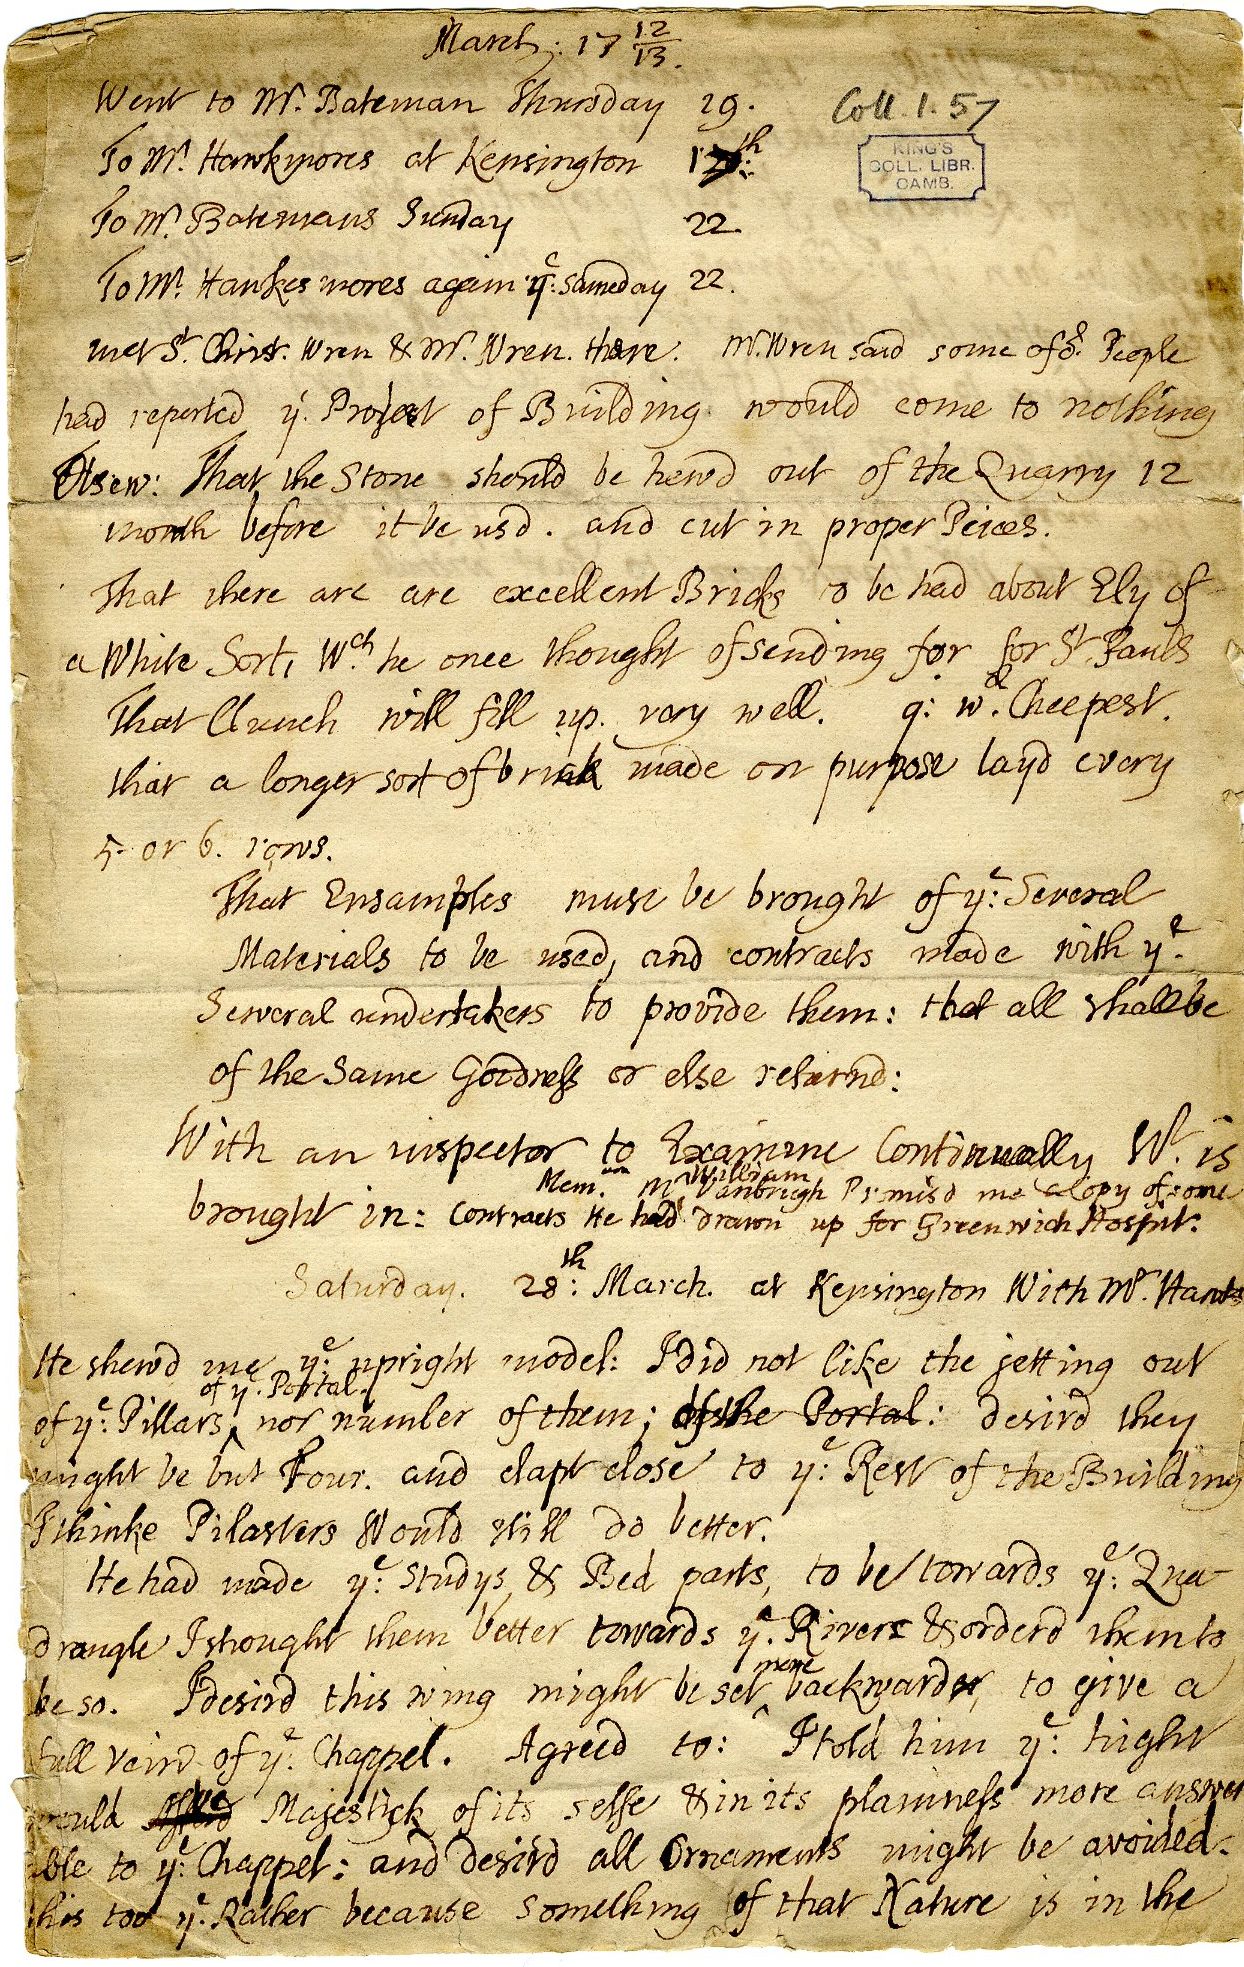 March: 17 12/13.
Went to Mr. Bateman Thursday 19.
Coll. 1. 57
To Mr. Hawkmores at Kensington th:
KING'S
COLL. LIBR.
CAMB.
To Mr. Batemans Sunday 22.
To Mr. Haukesmores again ye: sameday 22.
met Sr. Christ. Wren & Mr. Wren. there. Mr. Wren said some of or. People
had reported ye. Project of Building would come to nothing
That the Stone should be hewd out of the Quarry 12
month before it be usd. and cut in proper Peices.
That there are are excellent Bricks to be had about Ely of
a White Sort, Wch. he once thought of sending for for St. Pauls
That Clunch will fill up. very well. q: wd. Cheepest.
that a longer sort of brick made on purpose layd every
5 or 6. rows.
That Ensamples must be brought of ye: Several
Materials to be used, and contracts made with ye.
Several undertakers to provide them: that all shall be
of the Same Goodness or else returnd:
With an inspector to Examine Continually Wt. is
Mem. Mr William Vanbrugh Promisd me a Copy of some
brought in: Contracts He had drawn up for Greenwich Hospit:
Saturday. 28th: March. at Kensington With Mr. Hanks
He shewd me ye: upright model: I did not like the jetting out
of ye. Portal.
of ye: Pillars, nor number of them; of the Portal: desird they
might be but Four. and clapt close to ye: Rest of the Building
I thinke Pilasters Would still do better.
He had made ye: Studys & Bed parts, to be towards ye: Qua-
drangle I thought them better towards ye. River & orderd them to
more
be so. I desird this wing might be set backwarder, to give a
full veiw of ye: Chappel. Agreed to: I told him ye: hight
would be Majestick of its selfe & in its plainness more answer
able to ye: Chappel: and desird all Ornaments might be avoided.
this too ye. Rather because something of that Nature is in the